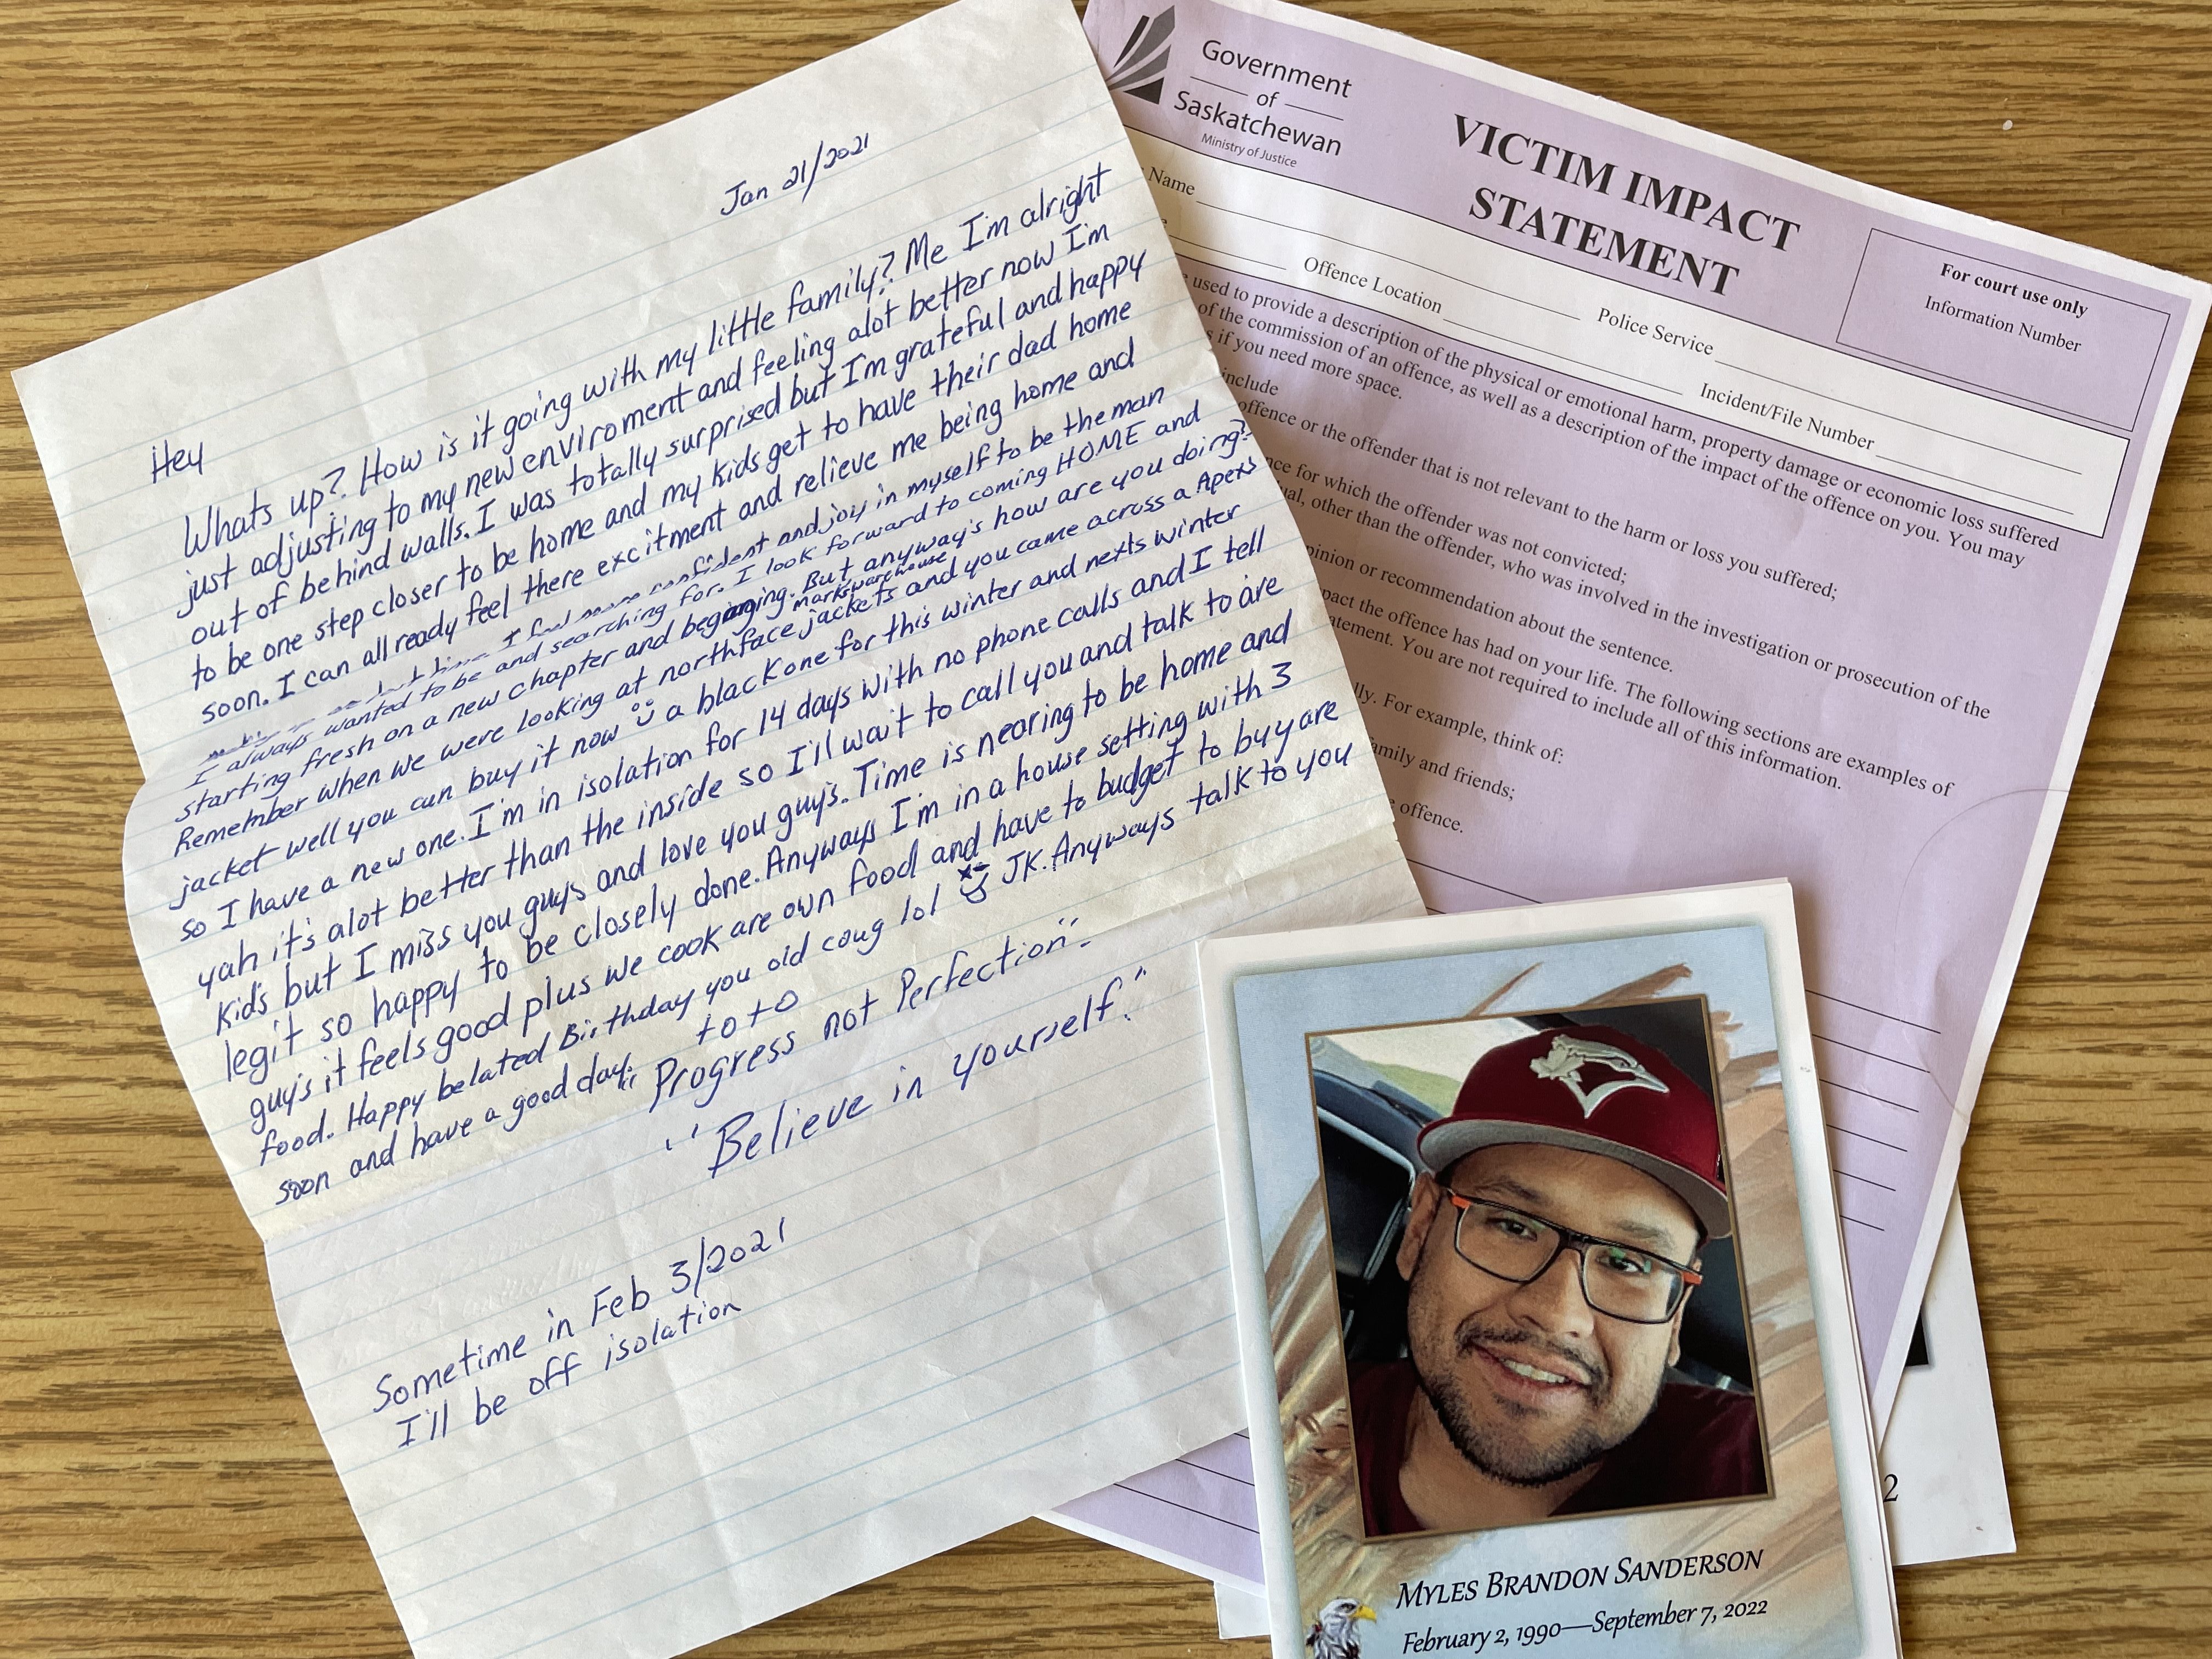 Jan 21/2021
Hey
Whats up? How is it going with my little family? Me I'm alright
just adjusting to my new enviroment and feeling alot better now I'm
out of behind walls. I was totally surprised but I'm grateful and happy
to be one step closer to be home and my kids get to have their dad home
soon. I can all ready feel there excitment and relieve me being home and
I feel more confident and joy in myself to be the man
I always wanted to be and searching for. I look forward to coming HOME and
starting fresh on a new chapter and beginging. But anyway's how are you doing?
markswarehouse
Remember when we were looking at northface jackets and you came across a Apex
jacket well you can buy it now a black one for this winter and nexts winter
so I have a new one. I'm in isolation for 14 days with no phone calls and I tell
yah it's alot better than the inside so I'll wait to call you and talk to are
Kid's but I miss you guys and love you guy's. Time is nearing to be home and
legit so happy to be closely done. Anyways I'm in a house setting with 3
guy's it feels good plus we cook are own food and have to budget to buy are
food. Happy belated Birthday you old coug lol JK. Anyways talk to you
soon and have a good day.
to to
"Progress not Perfection"
"Believe in yourself."
Sometime in Feb 3/2021
I'll be off isolation
Government
of
Saskatchewan
Ministry of Justice
VICTIM IMPACT
STATEMENT
For court use only
Information Number
Name
Offence Location
Police Service
Incident/File Number
used to provide a description of the physical or emotional harm, property damage or economic loss suffered
of the commission of an offence, as well as a description of the impact of the offence on you. You may
if you need more space.
include
offence or the offender that is not relevant to the harm or loss you suffered;
for which the offender was not convicted;
other than the offender, who was involved in the investigation or prosecution of the
opinion or recommendation about the sentence.
impact the offence has had on your life. The following sections are examples of
statement. You are not required to include all of this information.
For example, think of:
family and friends;
offence.
2
MYLES BRANDON SANDERSON
February 2, 1990—September 7, 2022